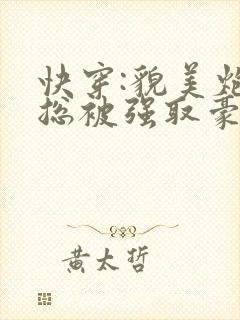 快穿:貌美炮
总被强取豪
黄太哲